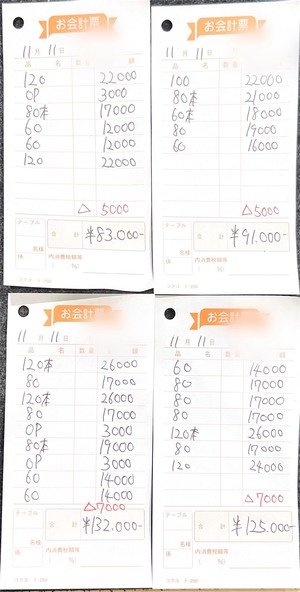 お会計票
11月11日
品名 数量 金額
120 22000
OP 3000
80本 17000
60 12000
60 12000
120 22000
△ 5000
テーブル
合計 ¥83.000-
名様 内消費税額等
係 ( %)
お会計票
11月11日
品名 数量 金額
100 22000
80本 21000
60本 18000
80 19000
60 16000
△5000
テーブル
合計 ¥91.000-
名様 内消費税額等
係 ( %)
お会計票
11月11日
品名 数量 金額
120本 26000
80 17000
120本 26000
80 17000
OP 3000
80本 19000
OP 3000
60 14000
60 14000
△7000
テーブル
合計 ¥132.000-
名様 内消費税額等
係 ( %)
お会計票
11月11日
品名 数量 金額
60 14000
80 17000
80 17000
80 17000
120本 26000
80 17000
120 24000
△7000
テーブル
合計 ¥125.000-
名様 内消費税額等
係 ( %)